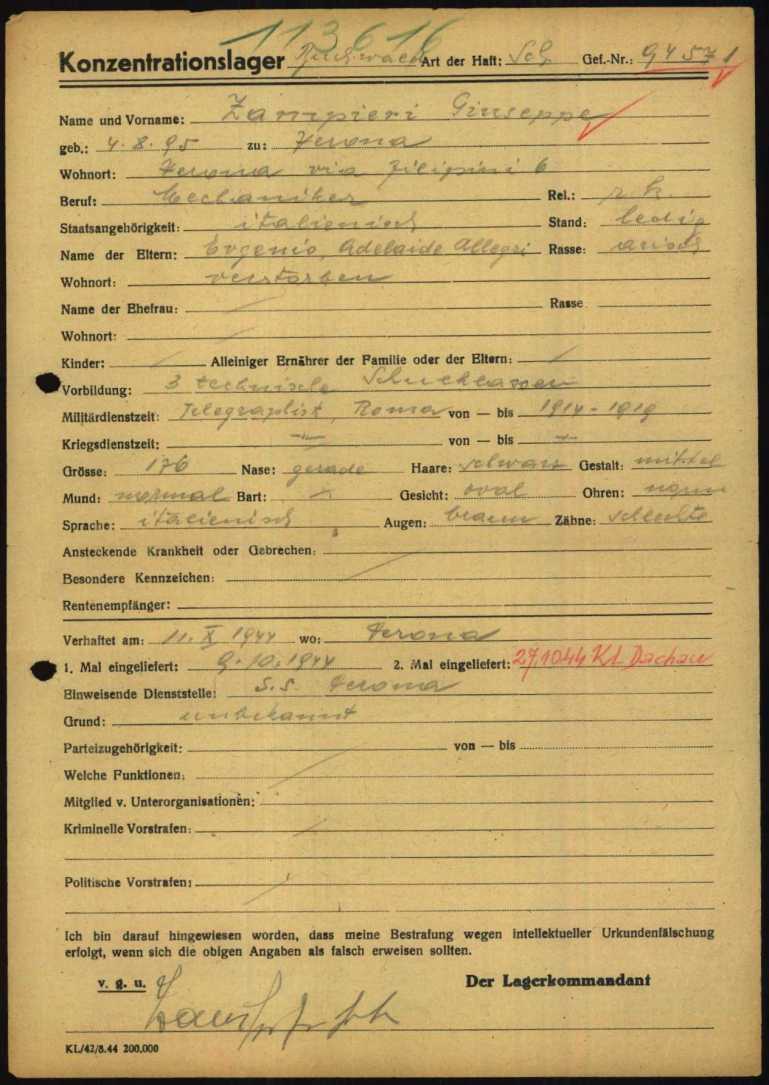 113616
Konzentrationslager Buchwald Art der Haft: Sch. Gef.-Nr.: 94571
Name und Vorname: Zampieri Giuseppe
geb.: 4.8.95 zu: Verona
Wohnort: Verona via Filipini 6
Beruf: Mechaniker Rel.: r.k.
Staatsangehörigkeit: italienisch Stand: ledig
Name der Eltern: Evgenio, Adelaide Allegri Rasse: arisch
Wohnort: verstorben
Name der Ehefrau: / Rasse
Wohnort: /
Kinder: / Alleiniger Ernährer der Familie oder der Eltern: /
Vorbildung: 3 technische
Militärdienstzeit: Telegraphist, Roma von — bis 1914-1919
Kriegsdienstzeit: von — bis
Grösse: 176 Nase: gerade Haare: schwarz Gestalt: mittel
Mund: normal Bart: Gesicht: oval Ohren: norm
Sprache: italienisch Augen: braun Zähne: schlechte
Ansteckende Krankheit oder Gebrechen:
Besondere Kennzeichen: /
Rentenempfänger:
Verhaftet am: 11. X 1944 wo: Verona
1. Mal eingeliefert: 9.10.1944 2. Mal eingeliefert: 27.10.44 Kl. Dachau
Einweisende Dienststelle: S.S. Verona
Grund: unbekannt
Parteizugehörigkeit: von — bis
Welche Funktionen: /
Mitglied v. Unterorganisationen:
Kriminelle Vorstrafen: /
Politische Vorstrafen: /
Ich bin darauf hingewiesen worden, dass meine Bestrafung wegen intellektueller Urkundenfälschung
erfolgt, wenn sich die obigen Angaben als falsch erweisen sollten.
v. g. u. Der Lagerkommandant
KL/42/8.44 200.000